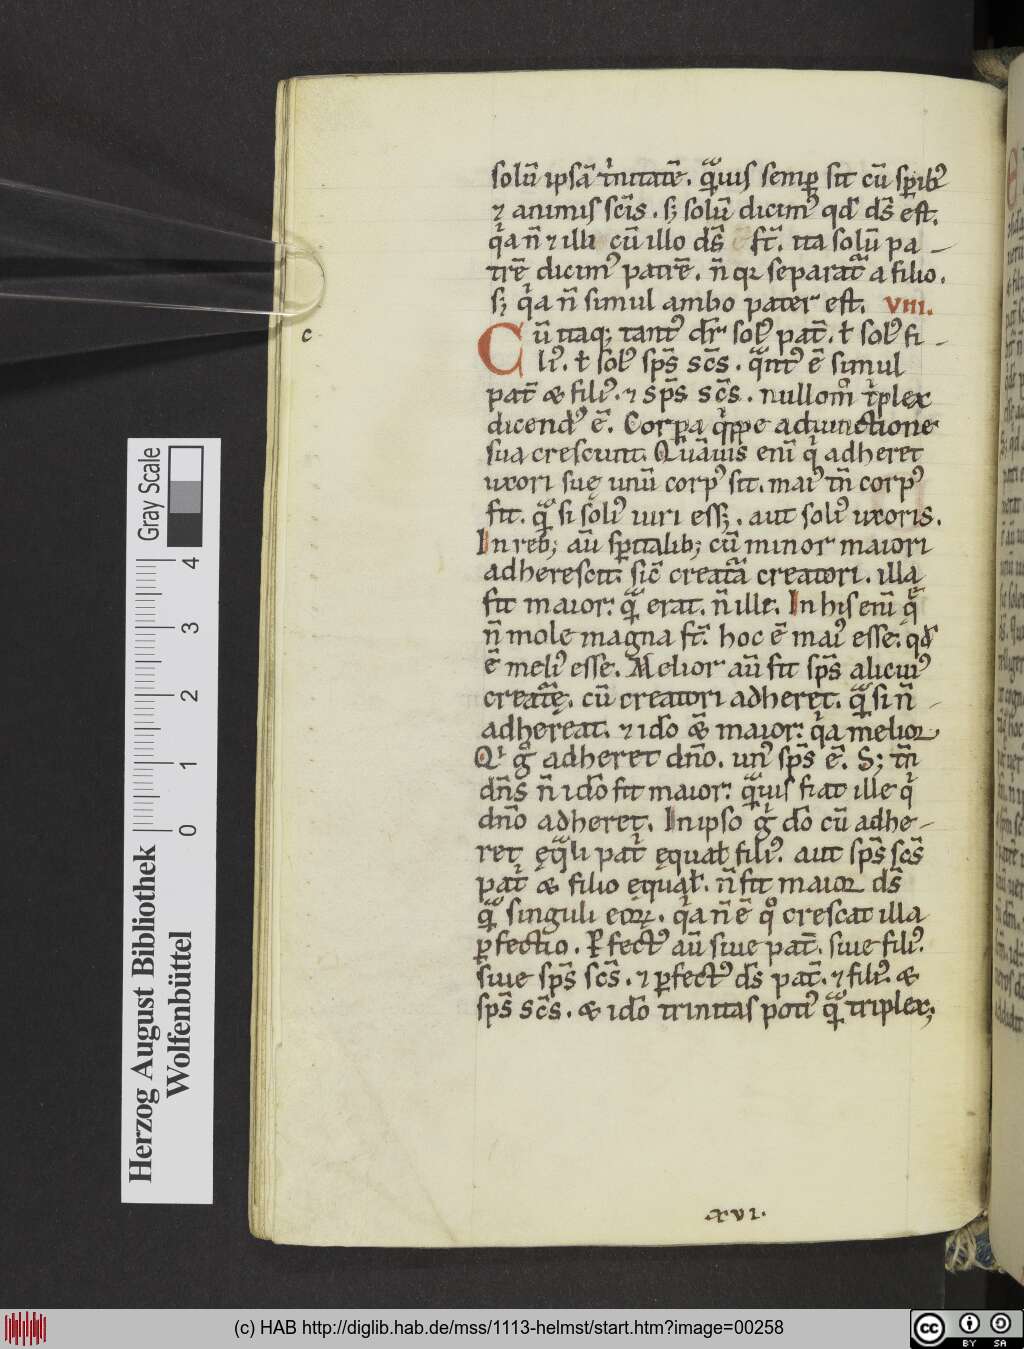 solũ ipsã t̾nitatẽ. qͣuis semp̱ sit cũ sp̱ibꝰ
⁊ animis sc̃is. sꝫ solũ dicimꝰ qđ ds̃ est.
qͥa ñ ⁊ illi cũ illo ds̃ st̃. ita solũ pa-
trẽ dicimꝰ patrẽ. ñ qꝛ separat̃ a filio.
sꝫ qͥa ñ simul ambo pater est. VIII.
c
Cũ itaqꝫ tantꝰ dr̃ solꝰ pat̃. ł solꝰ fi-
liꝰ. ł solꝰ sp̃s sc̃s. qͣntꝰ ẽ simul
pat̃ & filiꝰ. ⁊ sp̃s sc̃s. nullomͦ tͥplex
dicendꝰ ẽ. Corpa qͥppe adiunctione
sua crescunt. Quãuis enĩ qͥ adheret
uxori suę unũ corpꝰ sit. maiꝰ tñ corpꝰ
fit. qͣ si soliꝰ uiri essꝫ. aut soliꝰ uxoris.
In rebꝫ aũ sp̱italibꝫ cũ minor maiori
adherescit. sic̃ creatͣa creatori. illa
fit maior. qͣ erat. ñ ille. In his enĩ qͤ
ñ mole magna st̃. hoc ẽ maiꝰ esse. qđ
ẽ meliꝰ esse. Melior aũ fit sp̃s alicuiꝰ
creatͣę. cũ creatori adheret. qͣ si ñ
adhereat. ⁊ ido̾ & maior. qͥa melior
Qͥ gͦ adheret dño. unꝰ sp̃s ẽ. Sꝫ tñ
dñs ñ ido̾ fit maior. qͣuis fiat ille qͥ
dño adheret. In ipso gͥ do̾ cũ adhe-
ret ęqͣli pat̾ ęqual filiꝰ. aut sp̃s sc̃s
pat̾ & filio ęqual̾. ñ fit maior ds̃
qͣ singuli eoꝝ. qͥa ñ ẽ qͦ crescat illa
ꝑfectio. Ꝑfectꝰ aũ siue pat̃. siue filiꝰ.
siue sp̃s sc̃s. ⁊ ꝑfectꝰ ds̃ pat̃. ⁊ filiꝰ. &
sp̃s sc̃s. & ido̾ trinitas potiꝰ qͣ triplex;
XVI.
Gray Scale
4 3 2 1 0
Herzog August Bibliothek
Wolfenbüttel
(c) HAB http://diglib.hab.de/mss/1113-helmst/start.htm?image=00258
cc BY SA